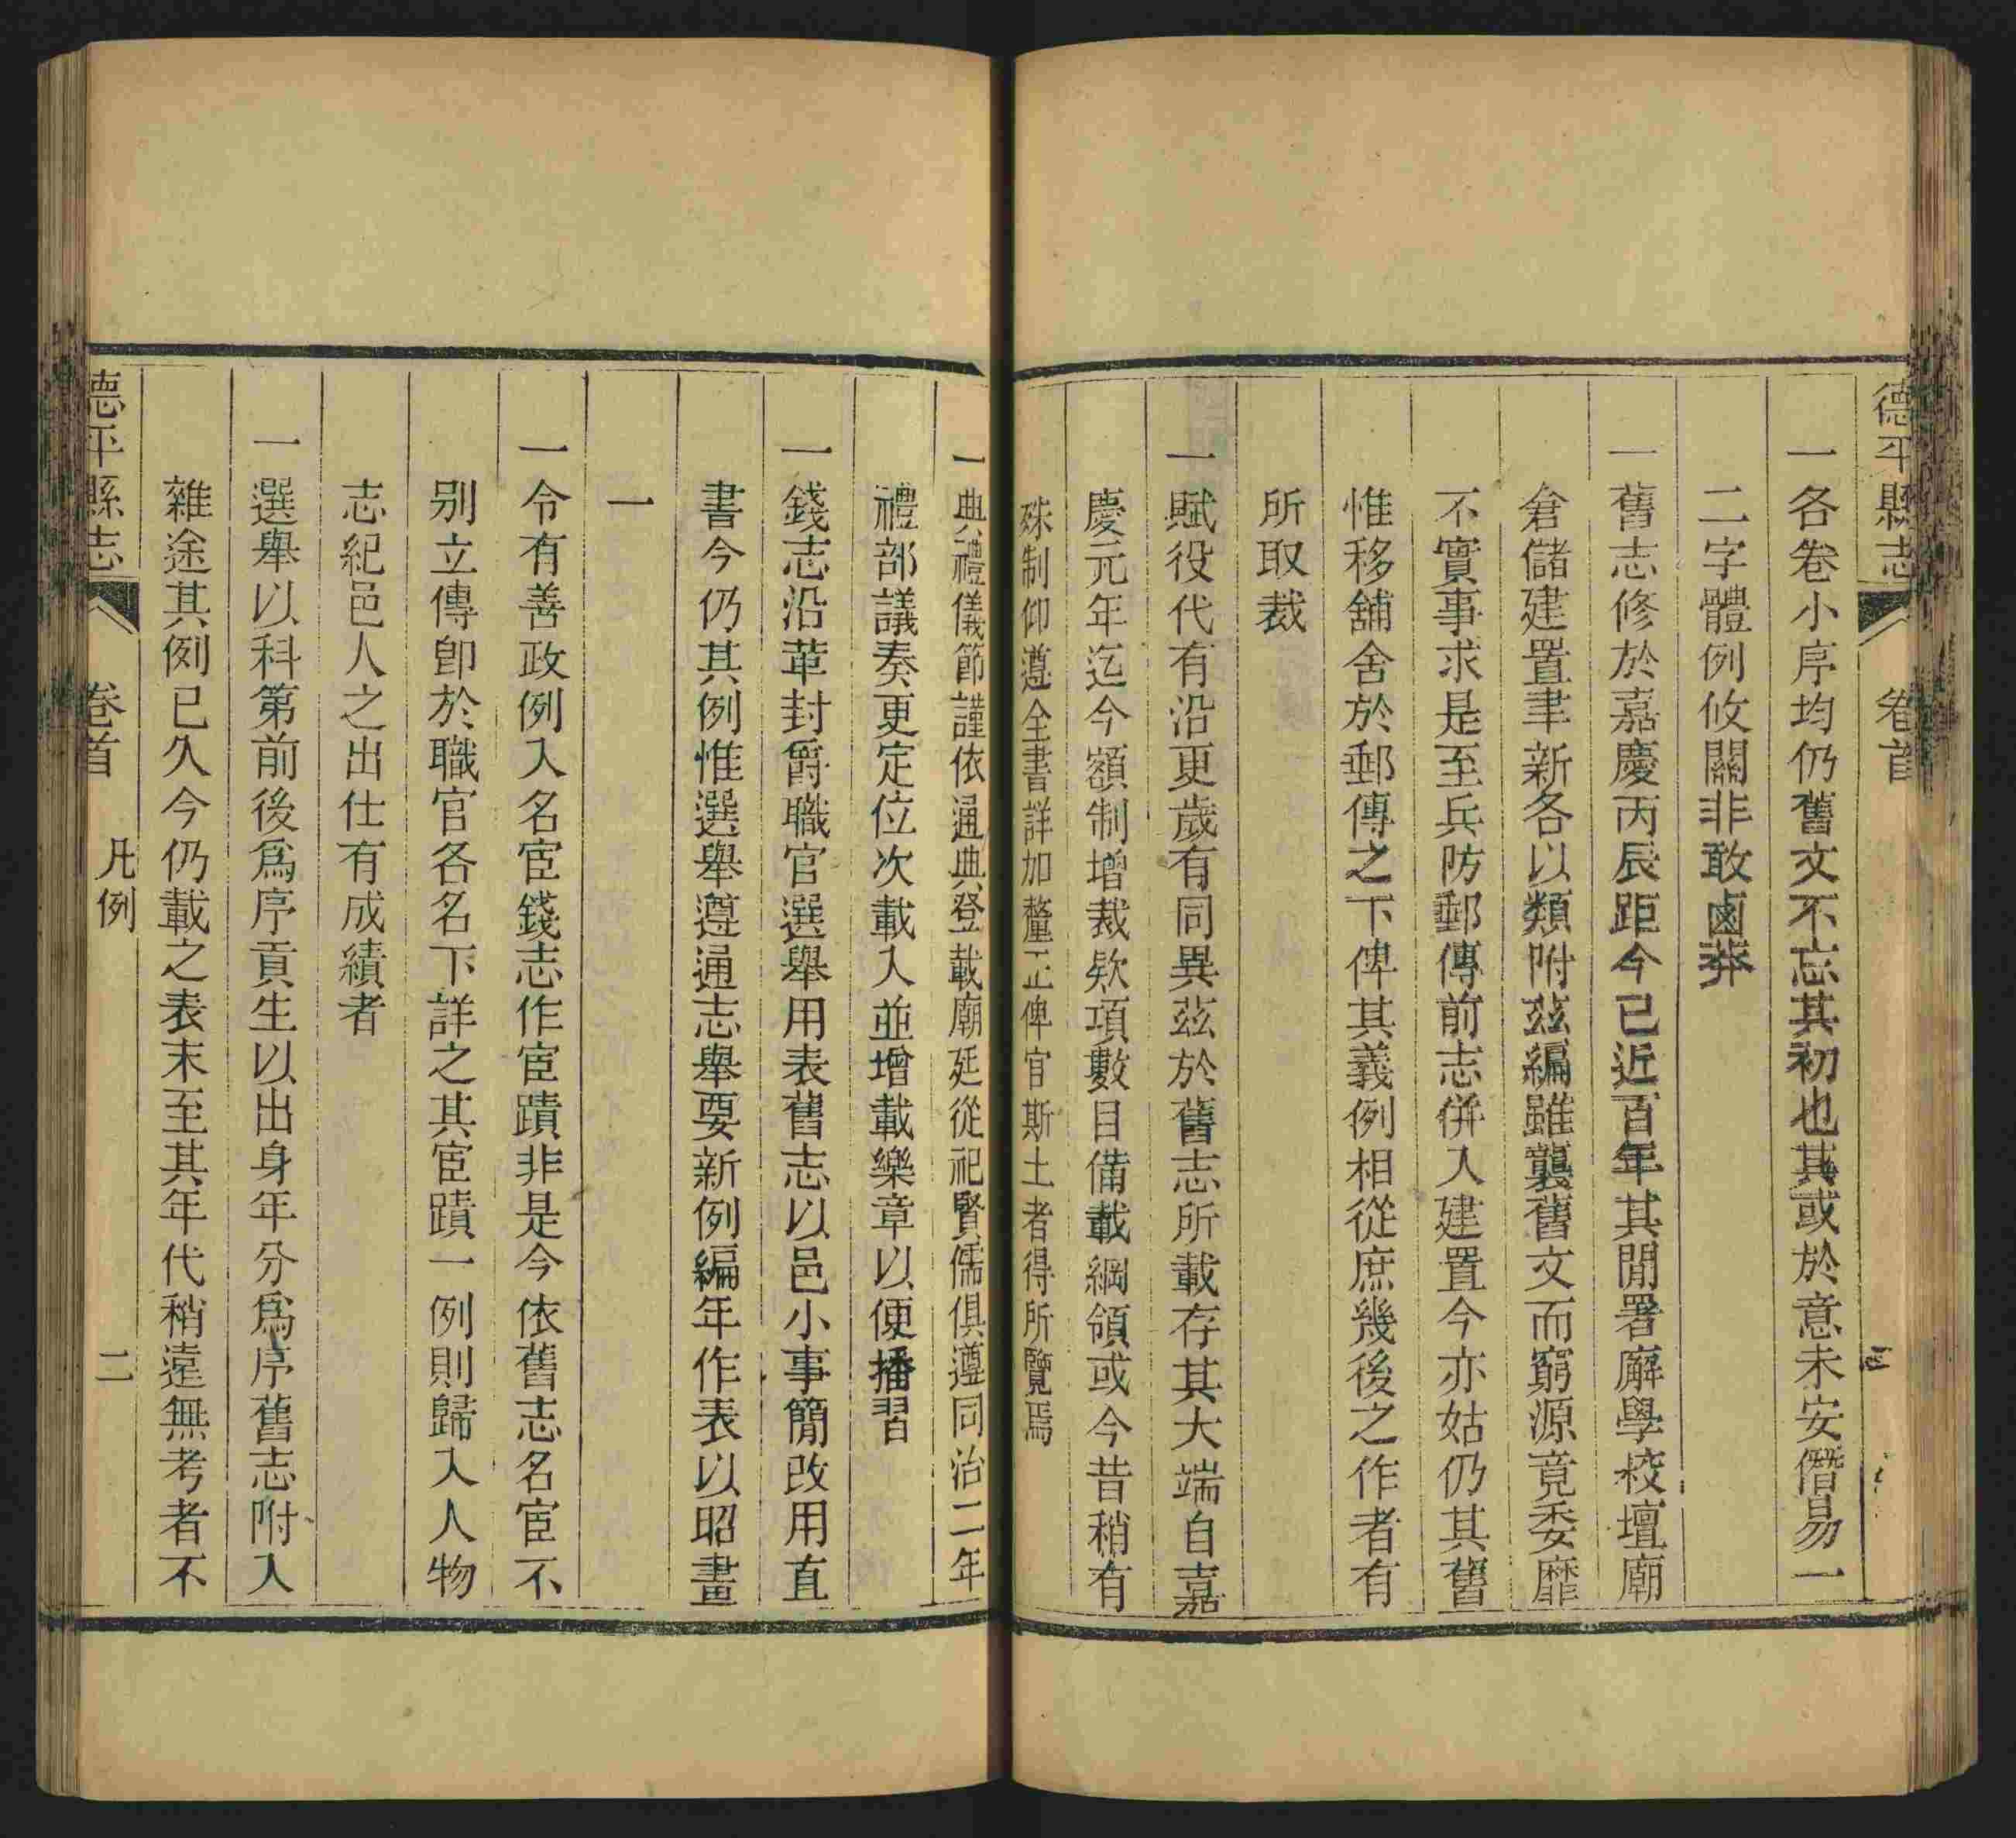 德平縣志 卷首
一各卷小序均仍舊文不忘其初也其或於意未安僭易一
二字體例攸關非敢鹵莽
一舊志修於嘉慶丙辰距今已近百年其閒署廨學校壇廟
倉儲建置聿新各以類附茲編雖襲舊文而窮源竟委靡
不實事求是至兵防郵傳前志併入建置今亦姑仍其舊
惟移舖舍於郵傳之下俾其義例相從庶幾後之作者有
所取裁
一賦役代有沿更歲有同異茲於舊志所載存其大端自嘉
慶元年迄今額制增裁欵項數目備載綱領或今昔稍有
殊制仰遵全書詳加釐正俾官斯土者得所覽焉
一典禮儀節謹依通典登載廟廷從祀賢儒俱遵同治二年
禮部議奏更定位次載入並增載樂章以便播習
一錢志沿革封爵職官選舉用表舊志以邑小事簡改用直
書今仍其例惟選舉遵通志舉要新例編年作表以昭畫
一
一令有善政例入名宦錢志作宦蹟非是今依舊志名宦不
别立傳卽於職官各名下詳之其宦蹟一例則歸入人物
志紀邑人之出仕有成績者
一選舉以科第前後爲序貢生以出身年分爲序舊志附入
雜途其例已久今仍載之表末至其年代稍遠無考者不
德平縣志 卷首 凡例 二